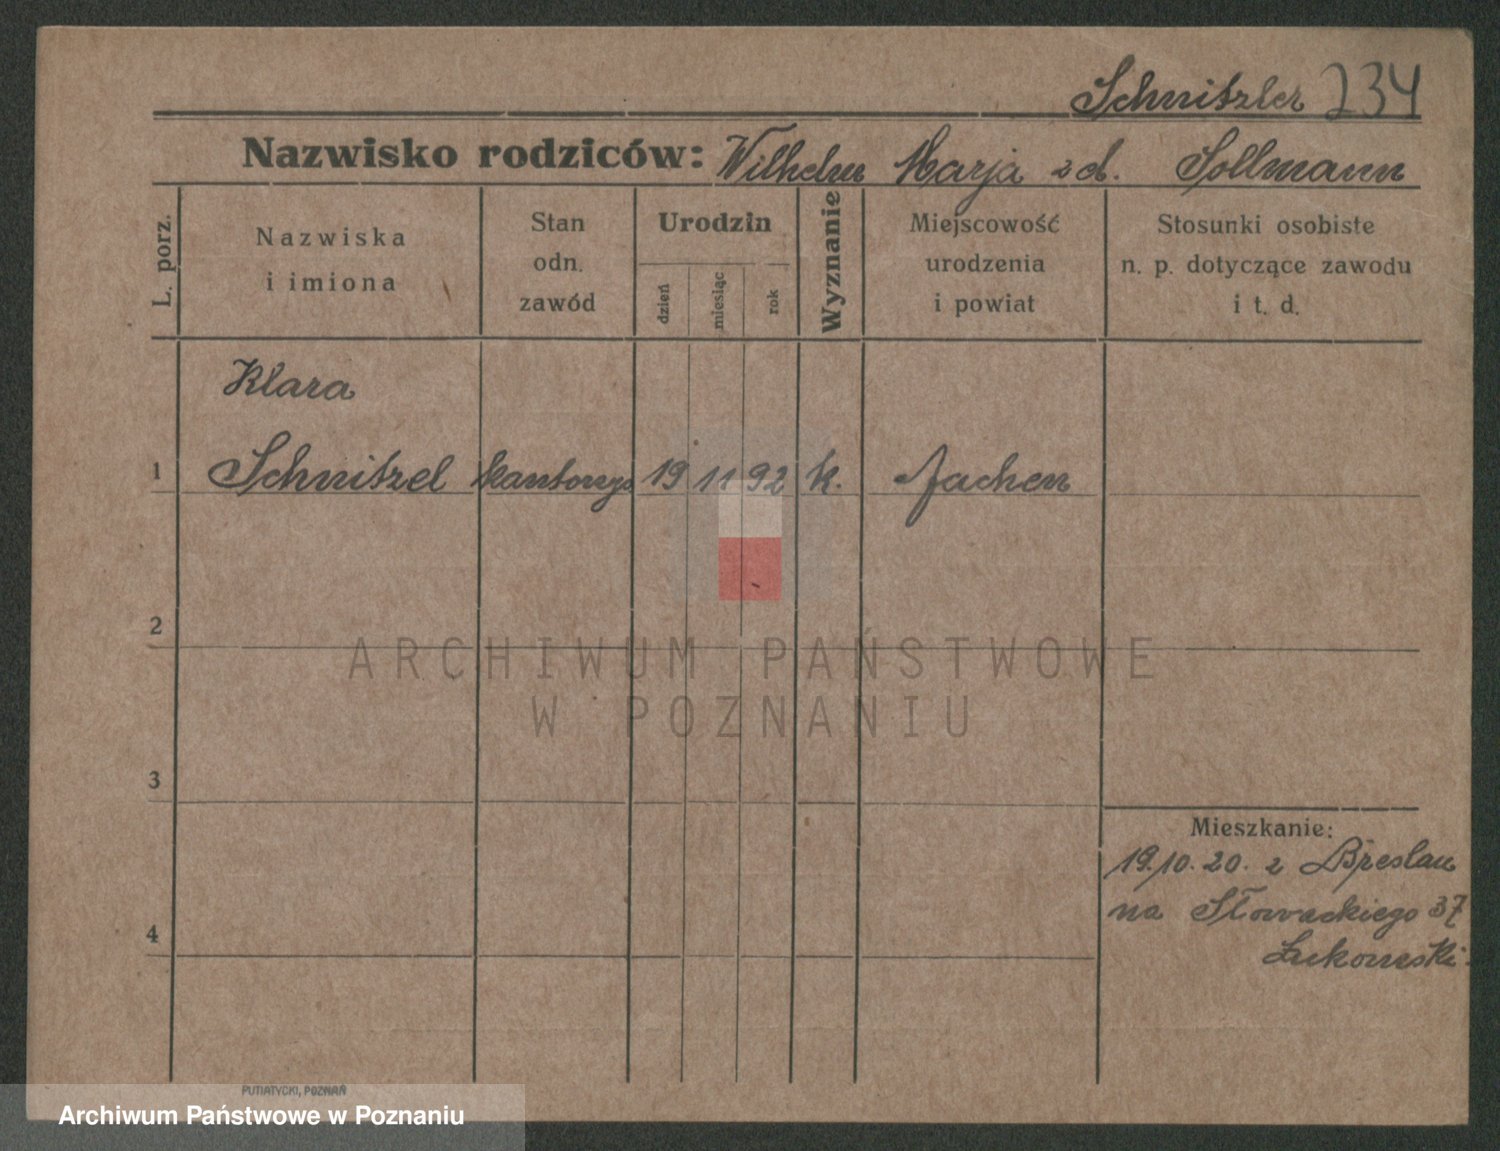 Schnitzler 234
Nazwisko rodziców: Wilhelm Marja zd. Sollmann
L. porz.
Nazwiska
i imiona
Stan
odn.
zawód
Urodzin
dzień
miesiąc
rok
Wyznanie
Miejscowość
urodzenia
i powiat
Stosunki osobiste
n. p. dotyczące zawodu
i t. d.
Klara
1 Schnitzel kantorzys 19 11 92 k. Aachen
2
ARCHIWUM PAŃSTWOWE
W POZNANIU
3
Mieszkanie:
19.10.20. z Breslau
na Słowackiego 37
4
Łukowski.
PUTIATYCKI, POZNAŃ
Archiwum Państwowe w Poznaniu